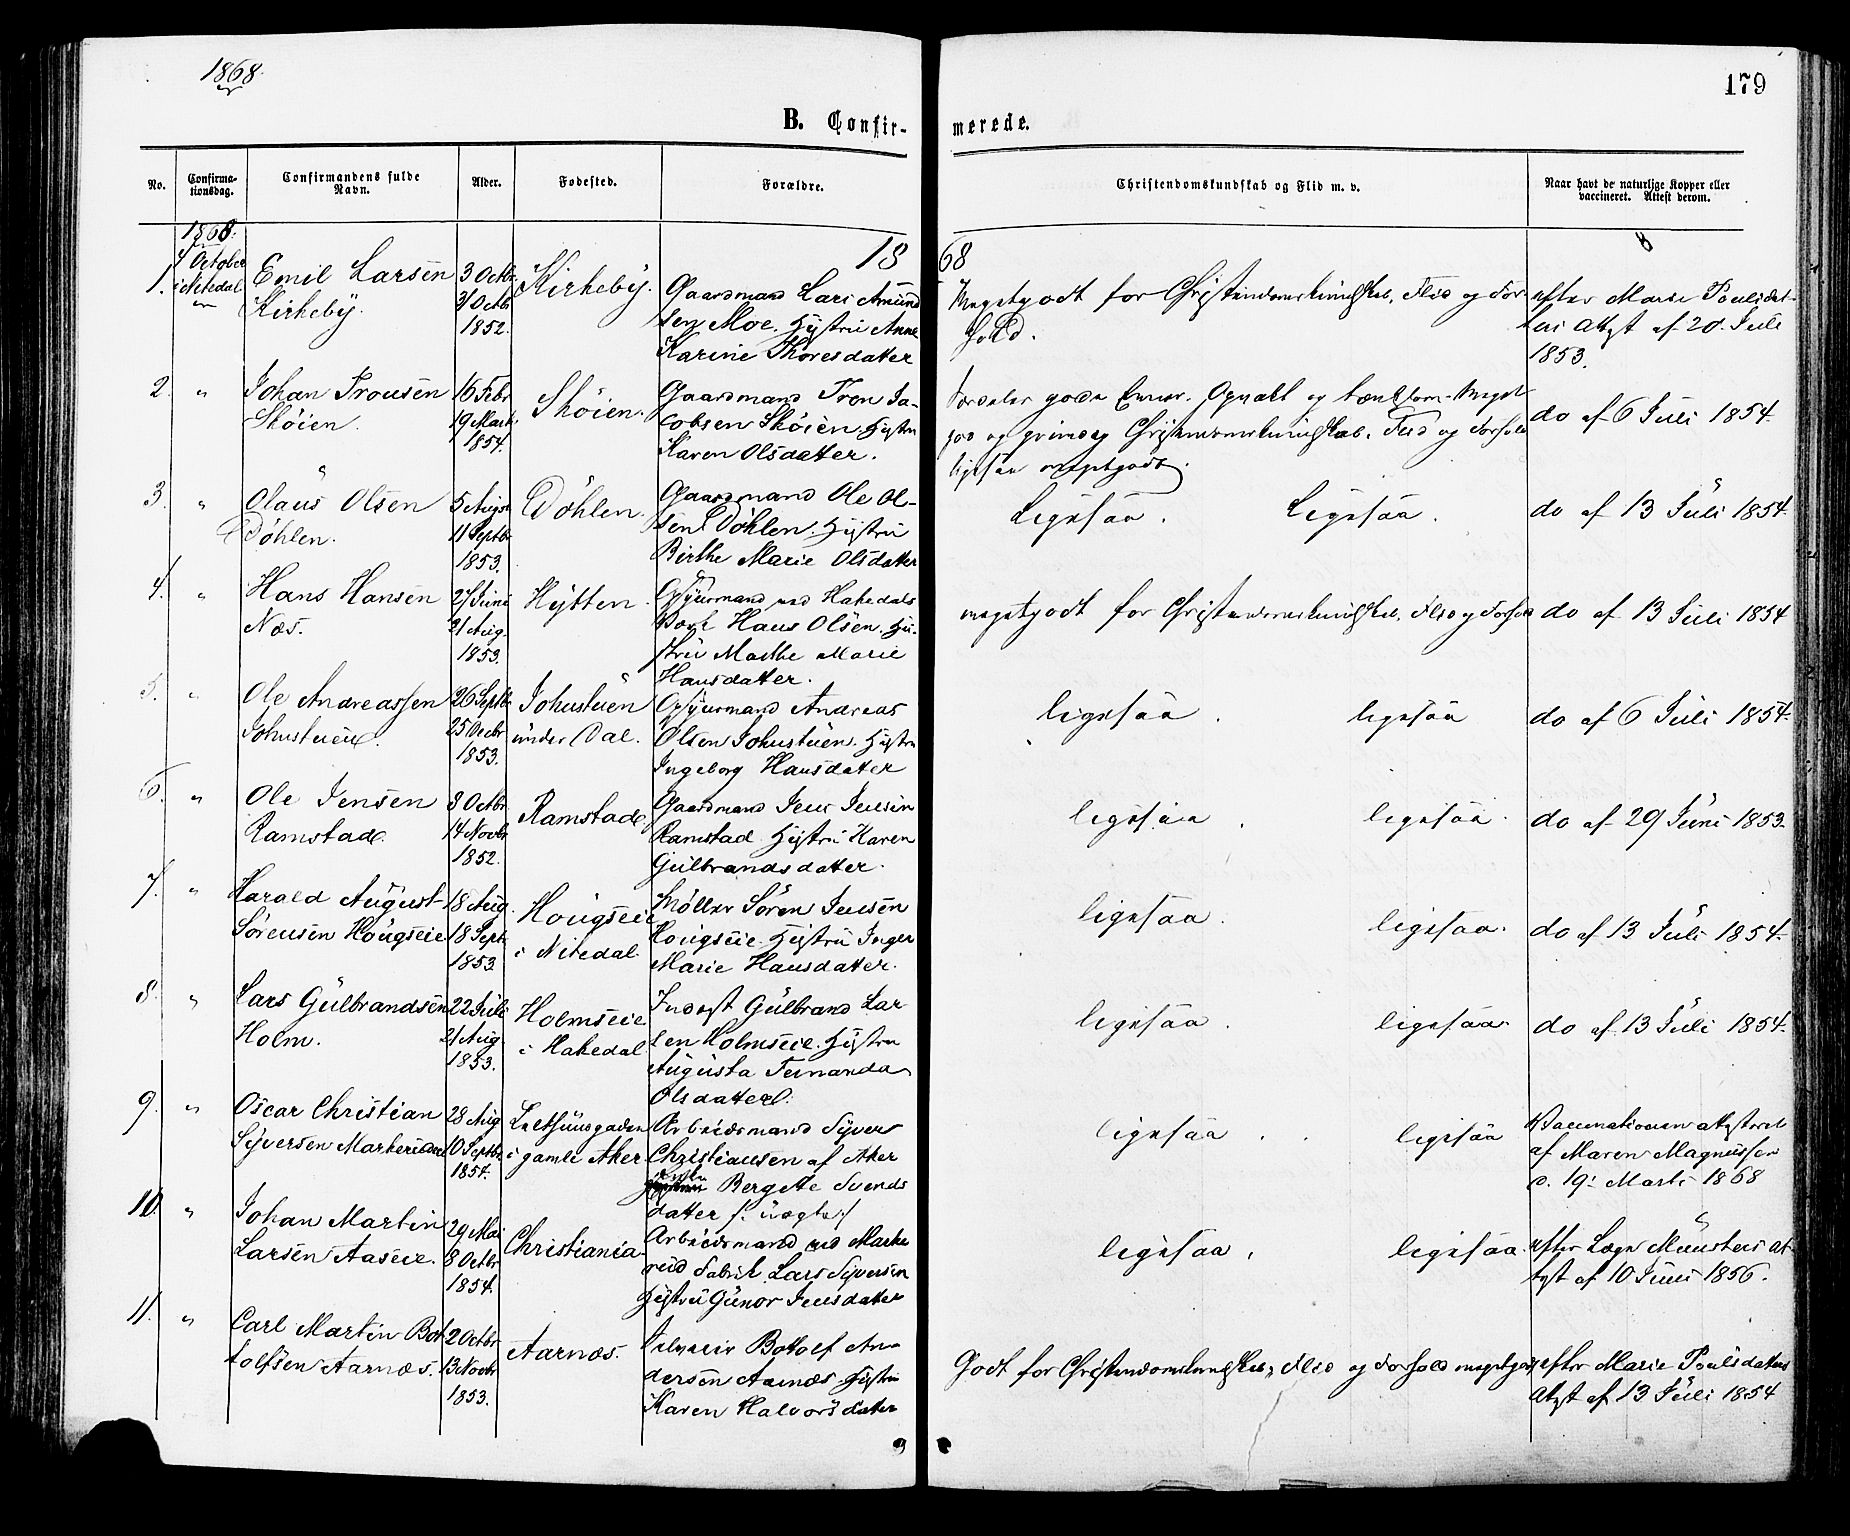 1868.
179
B. Confir-
merede.
No.
Confirma-
tionsdag.
Confirmandens fulde
Navn.
Alder.
Fødested.
Forældre.
Christendomskundskab og Flid m. v.
Naar havt de naturlige Kopper eller
vaccineret. Attest derom.
1868.
18
68
1.
4 October
i Nitedal
Emil Larsen
Kirkeby.
3 Octbr.
31 Octbr
1852.
Kirkeby.
Gaardmand Lars Amund
sen Moe. Hustru Anne
Karine Thoresdatter
Megetgodt for Christendomskundskab, Flid og For-
hold.
efter Marie Poulsdat-
ters Attest af 20. Juli
1853.
2.
"
Johan Tronsen
Skøien.
16 Febr
19 Marts
1854.
Skøien.
Gaardmand Tron Ja-
cobsen Skøien. Hustru
Karen Olsdatter.
gode Evner. Opvakt og tænksom. Meget
god og grundig Christendomskundskab. Flid og Forhold
ligesaa megetgodt.
do af 6 Juli 1854.
3.
"
Olaus Olsen
Døhlen.
5 August
11 Septbr
1853.
Døhlen.
Gaardmand Ole Ol-
sen Døhlen. Hustru
Birthe Marie Olsdatter
Ligesaa. Ligesaa.
do af 13 Juli 1854.
4.
"
Hans Hansen
Næs.
27 Juni
21 Aug.
1853.
Hytten.
Opsynsmand ved Hakedals
Værk Hans Olsen. Hu-
stru Marthe Marie
Hansdatter.
megetgodt for Christendomskundskab, Flid og Forhold
do af 13 Juli 1854
5.
"
Ole Andreassen
Johnstuen.
26 Septbr
25 Decbr
1853.
Johnstuen
under Dal.
Opsynsmand Andreas
Olsen Johnstuen. Hustru
Ingeborg Hansdatter
ligesaa. ligesaa
do af 6 Juli 1854.
6.
"
Ole Jensen
Ramstad.
8 Octbr
14 Novbr
1852.
Ramstad.
Gaardmand Jens Jensen
Ramstad. Hustru Karen
Gulbrandsdatter.
ligesaa. ligesaa.
do af 29 Juni 1853.
7.
"
Harald August
Sørensen Hougseie
18 Aug.
18 Sept.
1853
Hougseie
i Nitedal.
Møller Søren Jensen
Hougseie. Hustru Inger
Marie Hansdatter.
ligesaa. ligesaa.
do af 13 Juli 1854.
8.
"
Lars Gulbrandsen
Holm.
22 Juli
21 Aug.
1853.
Holmseie
i Hakedal
Inderst Gulbrand Lar
sen Holmseie. Hustru
Augusta Fernanda
Olsdatter.
ligesaa. ligesaa.
do af 13 Juli 1854.
9.
"
Oscar Christian
Syversen Markerud
28 Aug
10 Septbr
1854.
i gamle Aker
Arbeidsmand Syver
Christiansen af Aker
Bergete Svends
datter /: uægte :/
ligesaa. ligesaa
Vaccinationen attesteret
af Maren Magnussen
d. 19. Marts 1868
10.
"
Johan Martin
Larsen Aaseie.
29 Mai
8 Octbr
1854.
Christiania.
Arbeidsmand ved Marke
rud Fabrik Lars Syversen
Hustru Gunor Jensdatter
ligesaa. ligesaa.
efter Læge Münsters at-
test af 10 Juni 1856.
11.
"
Carl Martin Bot
tolfsen Aarnæs.
2 Octbr
13 Novbr
1853.
Aarnæs.
Botolf An-
dersen Aarnæs. Hustru
Karen Halvorsdatter
Godt for Christendomskundskab, Flid og Forhold megetgodt
efter Marie Poulsdatters
Attest af 13 Juli 1854